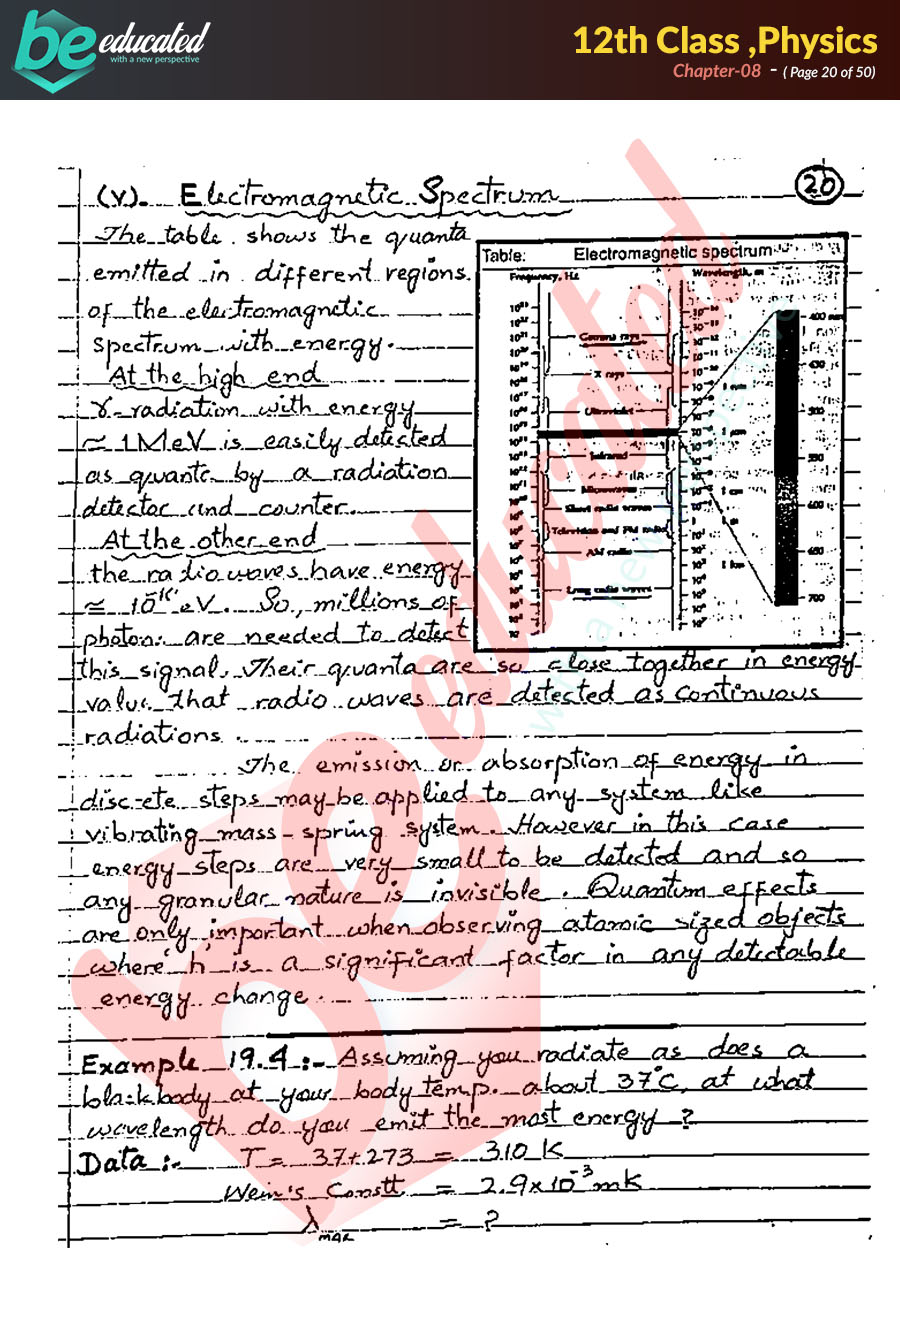 be educated
with a new perspective
12th Class ,Physics
Chapter-08 - ( Page 20 of 50)
20
(v). Electromagnetic Spectrum
The table shows the quanta
emitted in different regions
of the electromagnetic
spectrum with energy.
At the high end
γ-radiation with energy
≈ 1MeV is easily detected
as quanta by a radiation
detector and counter.
At the other end
the radiowaves have energy
≈ 10⁻¹⁰ eV. So, millions of
photons are needed to detect
this signal. Their quanta are so close together in energy
value that radio waves are detected as continuous
radiations.
Table: Electromagnetic spectrum
Frequency, Hz Wavelength, m
Gamma rays
X rays
Ultraviolet
Infrared
Microwaves
Short radio waves
Television and FM radio
AM radio
Long radio waves
400 nm
450
500
550
600
650
700
1 nm
1 µm
1 cm
1 m
1 km
The emission or absorption of energy in
discrete steps may be applied to any system like
vibrating mass-spring system. However in this case
energy steps are very small to be detected and so
any granular nature is invisible. Quantum effects
are only important when observing atomic sized objects
where 'h' is a significant factor in any detectable
energy change.
Example 19.4:- Assuming you radiate as does a
blackbody at your body temp. about 37°C, at what
wavelength do you emit the most energy?
Data:- T = 37+273 = 310 K
Wein's Constt = 2.9×10⁻³ mK
λmax = ?
be educated